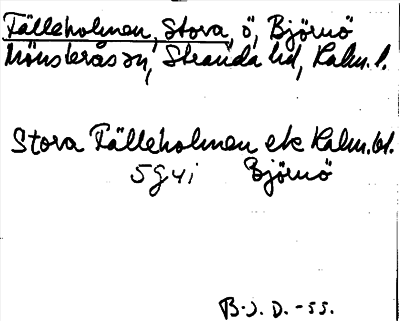 Fälleholmen, Stora, ö, Björnö
Mönsterås sn, Stranda hd, Kalm. l.
Stora Fälleholmen ek Kalm. bl.
5G4i Björnö
B. J. D. -55.